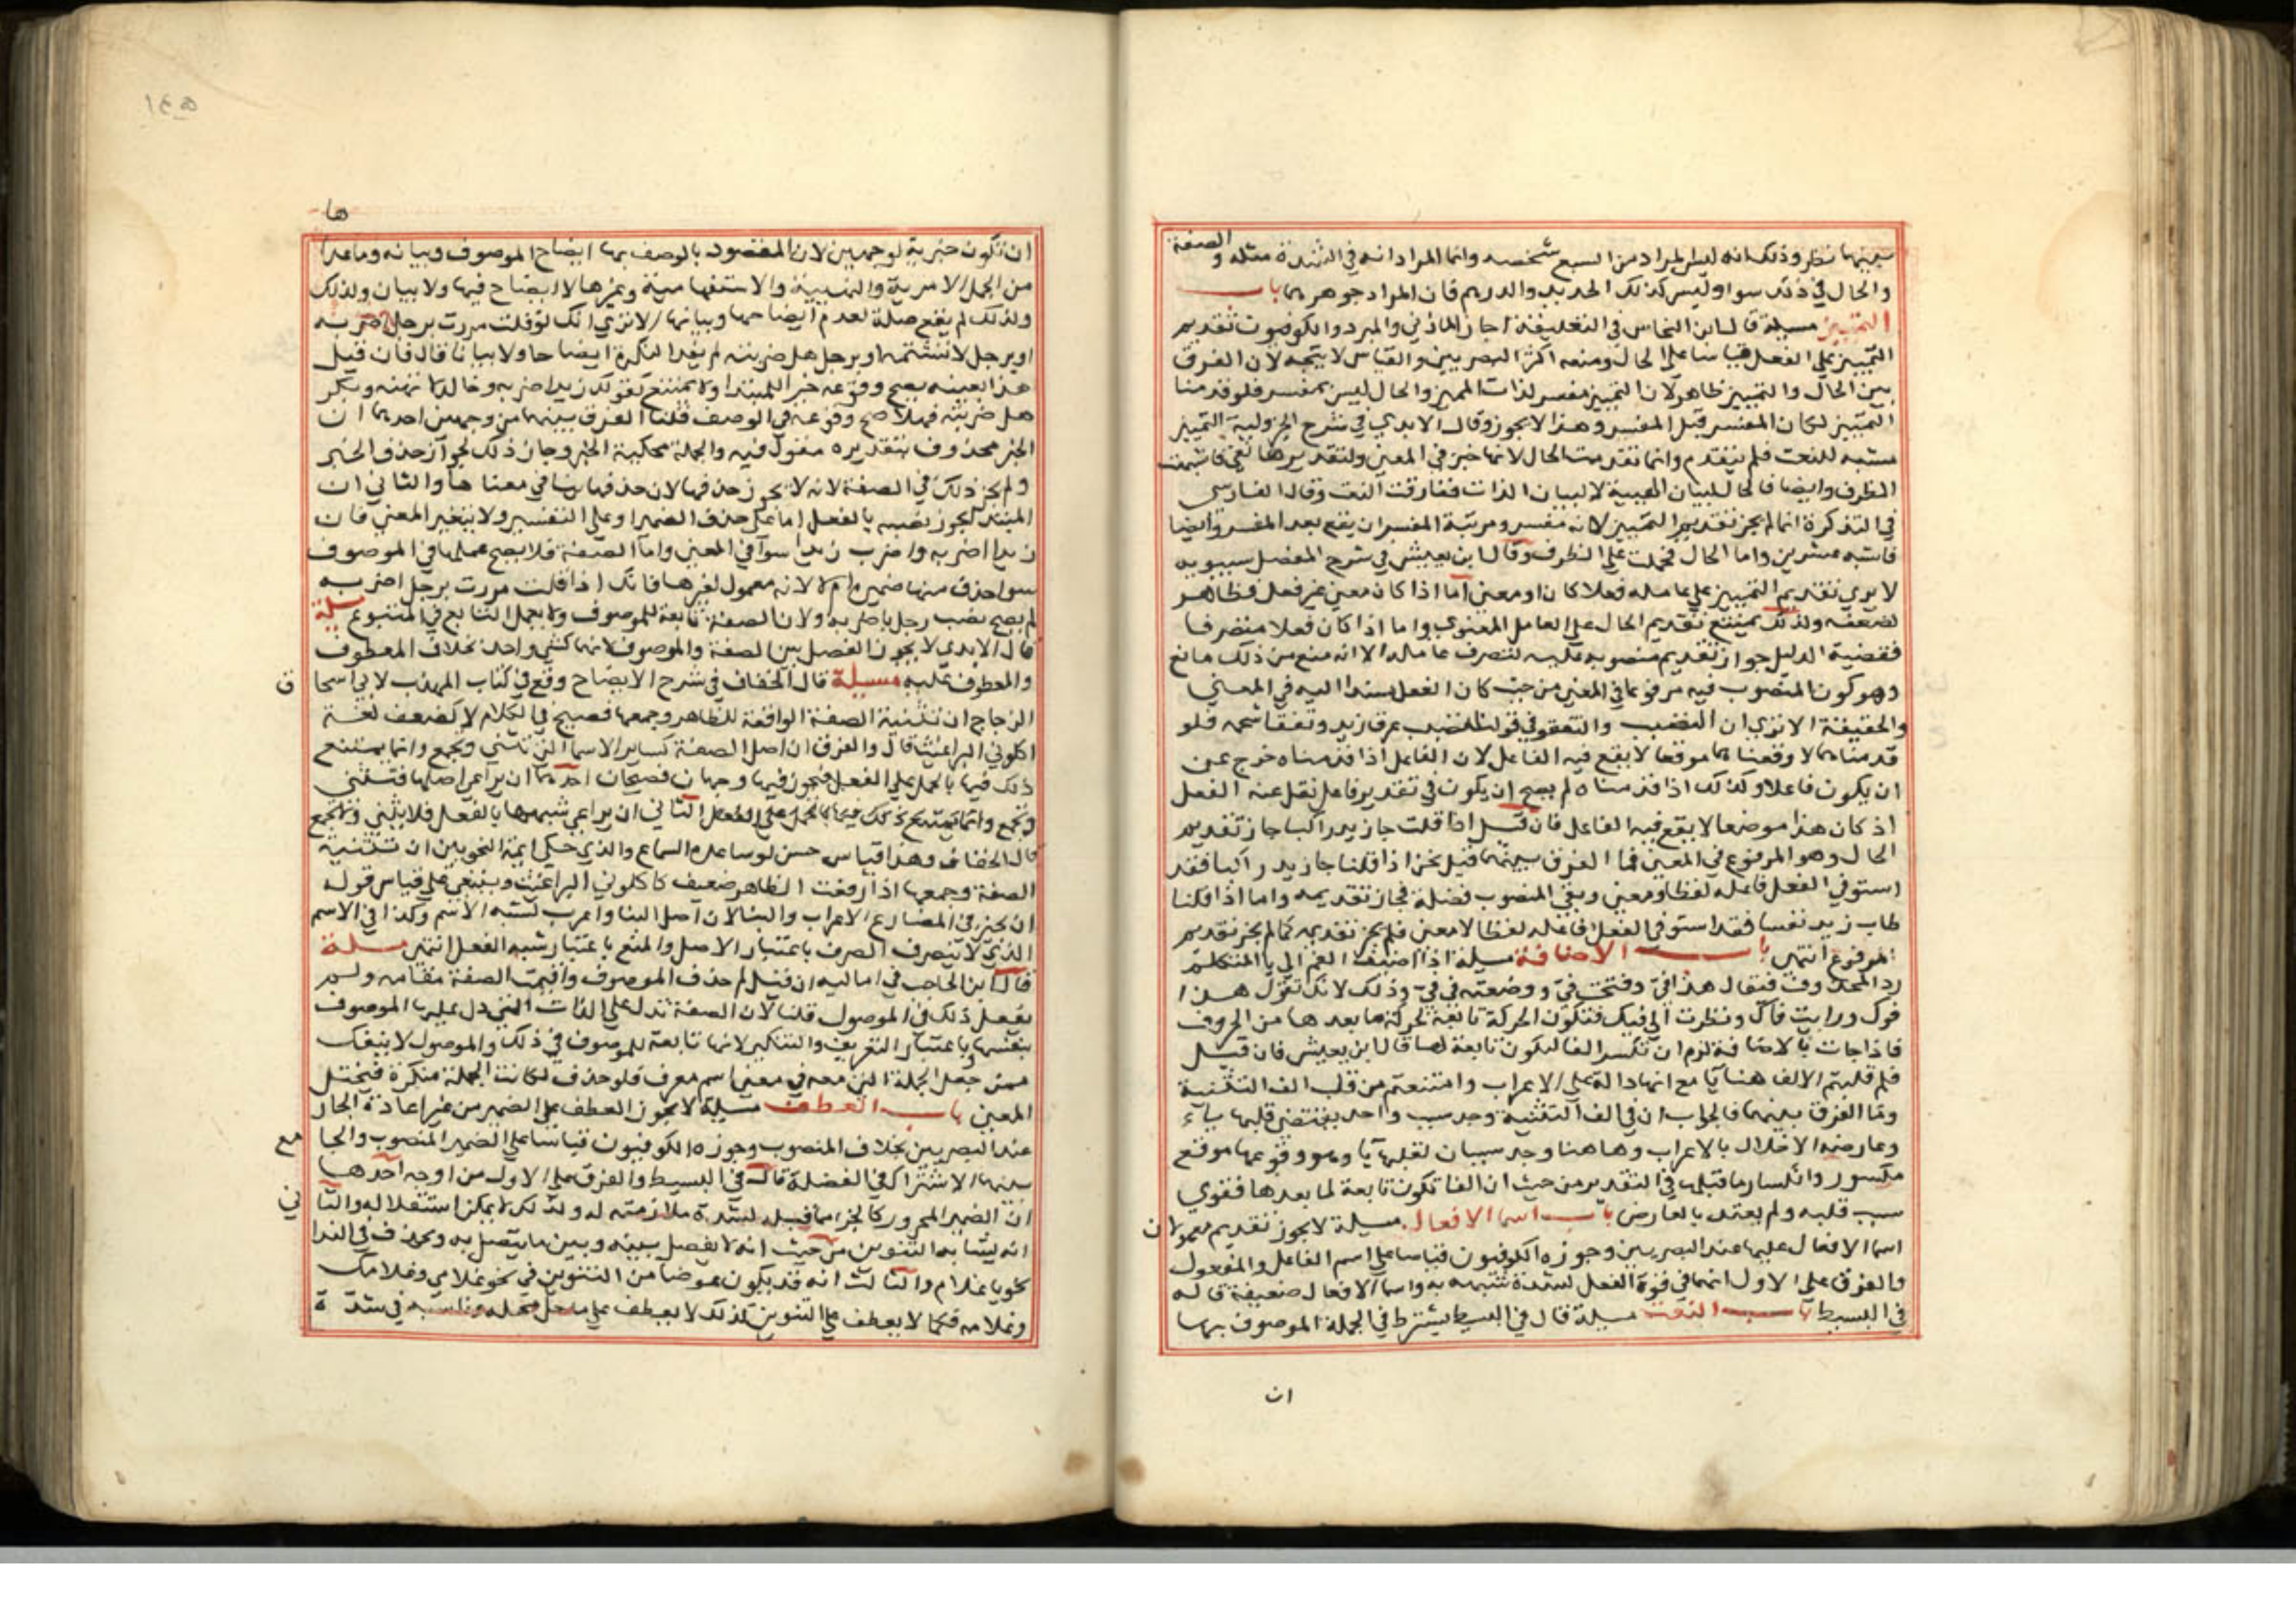 بينهما نظر وذلك انه ليس المراد من السبع شخصه وانما المراد انه في الشدة مثله و الصفة
والحال في ذلك سوا وليس كذلك الحديد والدرهم فان المراد جوهرهما باب
التمييز مسيلة قال ابن النحاس في التعليقة اجاز المازني والمبرد والكوفيون تقديم
التمييز علي الفعل قياسا علي الحال ومنعه اكثر البصريين والقياس لا يتجه لان الفرق
بين الحال والتمييز ظاهر لان التمييز مفسر لذات المميز والحال ليس بمفسر فلو قدمنا
التمييز لكان المفسر قبل المفسر وهذا لا يجوز وقال الابدي في شرح الجزولية التمييز
مشبه للنعت فلم يتقدم وانما تقدمت الحال لانها خبر في المعني ولتقديرها بفي فاشبهت
الظرف وايضا فالحال لبيان الهيية لا لبيان الذات ففارقت النعت وقال الفارسي
في التذكرة انما لم يجز تقديم التمييز لانه مفسر ومرتبة المفسر ان يقع بعد المفسر وايضا
فاشبه عشرين واما الحال فحملت علي الظرف وقال ابن يعيش في شرح المفصل سيبويه
لا يري تقديم التمييز علي عامله فعلا كان او معني اما اذا كان معني غير فعل فظاهر
لضعفه ولذلك يمتنع تقديم الحال علي العامل المعنوي واما اذا كان فعلا متصرفا
فقضية الدليل جواز تقديم منصوبه عليه لتصرف عامله الا انه منع من ذلك مانع
وهو كون المنصوب فيه مرفوعا في المعني من حيث كان الفعل مسندا اليه في المعني
والحقيقة الا تري ان التصبب والتفقو في قولنا تصبب عرقا زيد وتفقا شحمه فلو
قدمناهما لاوقعناهما موقعا لا يقع فيه الفاعل لان الفاعل اذا قدمناه خرج عن
ان يكون فاعلا وكذلك اذا قدمناه لم يصح ان يكون في تقدير فاعل نقل عنه الفعل
اذ كان هذا موضعا لا يقع فيه الفاعل فان قيل اذا قلت جا زيد راكبا جاز تقديم
الحال وهو المرفوع في المعني فما الفرق بينهما قيل نحن اذا قلنا جا زيد راكبا فقد
استوفي الفعل فاعله لفظا ومعني وبقي المنصوب فضلة فجاز تقديمه واما اذا قلنا
طاب زيد نفسا فقد استوفي الفعل فاعله لفظا لا معني فلم يجز تقديمه كما لم يجز تقديم
المرفوع انتهي باب الاضافة مسيلة اذا اضيف الفم الي يا المتكلم
رد المحذوف فيقال هذا في وفتحت في ووضعته في في وذلك لانك تقول هذا
فوك ورايت فاك ونظرت الي فيك فتكون الحركة تابعة لحركة ما بعدها من الحروف
فاذا جات يا الاضافة لزم ان تكسر الفا لتكون تابعة لها قال ابن يعيش فان قيل
فلم قلبتم الالف هنا يا مع انها دالة علي الاعراب وامتنعتم من قلب الف التثنية
وما الفرق بينهما فالجواب ان في الف التثنية وجد سبب واحد يقتضي قلبها ياء
وعارضه الاخلال بالاعراب وهاهنا وجد سببان لقلبها يا وهو وقوعها موقع
مكسور وانكسار ما قبلها في التقدير من حيث ان الفا تكون تابعة لما بعدها فقوي
سبب قلبه ولم يعتد بالعارض باب اسما الافعال مسيلة لا يجوز تقديم معمولات
اسما الافعال عليها عند البصريين وجوزه الكوفيون قياسا علي اسم الفاعل والمفعول
والفرق علي الاول انهما في قوة الفعل لشدة شبههما به واسما الافعال ضعيفة قاله
في البسيط باب النعت مسيلة قال في البسيط يشترط في الجملة الموصوف بها
ان
١٤٥
ها
ان تكون خبرية لوجهين لان المقصود بالوصف بها ايضاح الموصوف وبيانه وما عدا
من الجمل الامرية والنهيية والاستفهامية وغيرها لا ايضاح فيها ولا بيان ولذلك
ولذلك لم يقع صلة لعدم ايضاحها وبيانها الا تري انك لو قلت مررت برجل اضربه
او برجل لا تشتمه او برجل هل ضربته لم يفد النكرة ايضاحا ولا بيانا قال فان قيل
هذا بعينه يصح وقوعه خبرا للمبتدا ولا يمتنع كقولك زيد اضربه وخالد لا تهنه وبكر
هل ضربته فهلا صح وقوعه في الوصف قلنا الفرق بينهما من وجهين احدهما ان
الخبر محذوف بتقديره مقول فيه والجملة محكية الخبر وجاز ذلك لجواز حذف الخبر
ولم يجز ذلك في الصفة لانه لا يجوز حذفها لان حذفها ينافي معناها والثاني ان
المبتدا يجوز نصبه بالفعل اما علي حذف الضمير او علي التفسير ولا يتغير المعني فان
زيدا اضربه واضرب زيدا سوا في المعني واما الصفة فلا يصح عملها في الموصوف
سوا حذف منها ضميره ام لا لانه معمول لغيرها فانك اذا قلت مررت برجل اضربه
لم يصح نصب رجل باضربه ولان الصفة تابعة للموصوف ولا يعمل التابع في المتبوع مسيلة
قال الابدي لا يجوز الفصل بين الصفة والموصوف لانهما كشي واحد بخلاف المعطوف
والمعطوف عليه مسيلة قال الخفاف في شرح الايضاح وقع في كتاب المهذب لابي اسحاق
الزجاج ان تثنية الصفة الواقعة للظاهر وجمعها فصيح في الكلام لا كضعف لغة
اكلوني البراغيث قال والفرق ان اصل الصفة كساير الاسما التي تثني وتجمع وانما يمتنع
ذلك فيها بالحمل علي الفعل فيجوز فيها وجهان فصيحان احدهما ان يراعي اصلها فتثني
وتجمع وانما يمتنع ذلك فيها بالحمل علي الفعل الثاني ان يراعي شبهها بالفعل فلا تثني ولا تجمع
قال الخفاف وهذا قياس حسن لو ساعده السماع والذي حكي ايمة النحويين ان تثنية
الصفة وجمعها اذا رفعت الظاهر ضعيف كاكلوني البراغيث وينبغي علي قياس قوله
ان يجيز في المضارع الاعراب والبنا لان اصل البنا واعرب لشبه الاسم وكذا في الاسم
الذي لا ينصرف الصرف باعتبار الاصل والمنع باعتبار شبه الفعل انتهي مسيلة
قال ابن الحاجب في اماليه ان قيل لم حذف الموصوف واقيمت الصفة مقامه ولم
يفعل ذلك في الموصول قلنا لان الصفة تدل علي الذات التي دل عليها الموصوف
بنفسها باعتبار التعريف والتنكير لانها تابعة للموصوف في ذلك والموصول لا ينفك
عن جعل الجملة التي معه في معني اسم معرف فلو حذف لكانت الجملة منكرة فيختل
المعني باب العطف مسيلة لا يجوز العطف علي الضمير من غير اعادة الجار
عند البصريين بخلاف المنصوب وجوزه الكوفيون قياسا علي الضمير المنصوب والجامع
بينهما الاشتراك في الفضلة قال في البسيط والفرق علي الاول من اوجه احدها
ان الضمير المجرور كالجزء مما قبله لشدة ملازمته له ولذلك لا يمكن استقلاله والثاني
انه يشابه التنوين من حيث انه لا يفصل بينه وبين ما يتصل به ويحذف في الندا
نحو يا غلام والثالث انه قد يكون عوضا من التنوين في نحو غلامي وغلامك
وغلامه فكما لا يعطف علي التنوين كذلك لا يعطف علي ما حل محله وناسبه في شدة